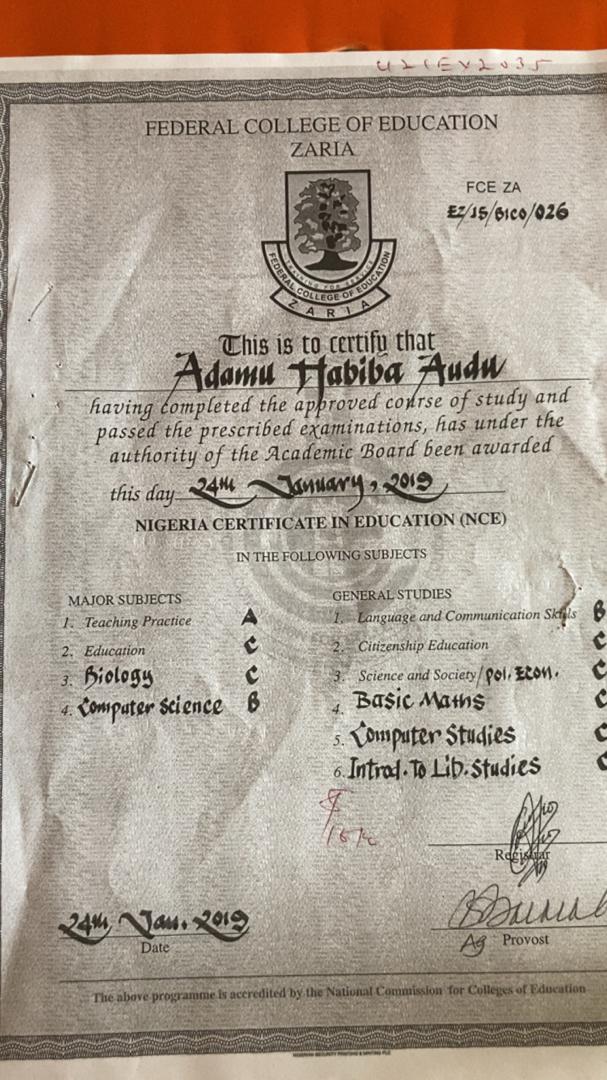 U21EX2035
FEDERAL COLLEGE OF EDUCATION
ZARIA
FCE ZA
EZ/15/BICO/026
TRAINING FOR SERVICE
FEDERAL COLLEGE OF EDUCATION
ZARIA
This is to certify that
Adamu Habiba Audu
having completed the approved course of study and
passed the prescribed examinations, has under the
authority of the Academic Board been awarded
this day 24th January, 2019
NIGERIA CERTIFICATE IN EDUCATION (NCE)
IN THE FOLLOWING SUBJECTS
MAJOR SUBJECTS
1. Teaching Practice A
2. Education C
3. Biology C
4. Computer Science B
GENERAL STUDIES
1. Language and Communication Skills B
2. Citizenship Education C
3. Science and Society/Pol. Econ. C
4. Basic Maths C
5. Computer Studies C
6. Introd. To Lib. Studies C
Registrar
24th Jan. 2019
Date
Ag Provost
The above programme is accredited by the National Commission for Colleges of Education